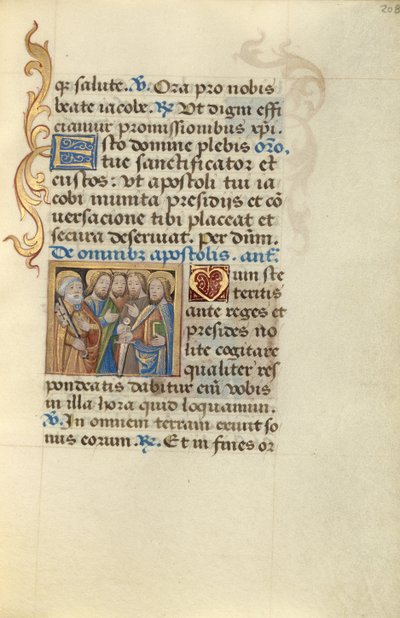 208
q̄ salute. ℣. Ora pro nobis
beate iacobe. ℟. Ut digni effi
ciamur promissionibus xp̄i.
Esto domine plebis orō,
tue sanctificator et
custos: ut apostoli tui ia
cobi munita presidijs et cō
uersacione tibi placeat et
secura deseruiat. Per dn̄m.
De omnibz apostolis. ant̄
Dum ste
teritis
ante reges et
presides no
lite cogitare
qualiter res
pondeatis dabitur em̄ vobis
in illa hora quid loquamini.
℣. In omnem terram exiuit so
nus eorum. ℟. Et in fines or